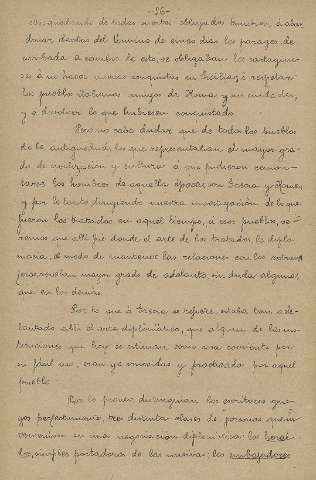 -26-
quedando de todas suertes obligados también á aban
donar dentro del término de cinco días los parajes de
á cambio de esto, se obligaban los cartagine-
ses á no hacer nuevas conquistas en y respetar
los pueblos italianos amigos de Roma y sus ciudades,
y á devolver lo que hubiesen conquistado.
Pero no cabe dudar que de todos los pueblos
de la antigüedad, los que representaban el mayor gra-
do de civilización y cultura á que pudieron remon-
tarse los hombres de aquella época, son Grecia y Roma,
y por lo tanto dirigiendo nuestra investigación de lo que
fueron los tratados en aquel tiempo, á esos pueblos, ve-
remos que allí fué donde el arte de los tratados, la diplo-
macia, el modo de mantener las relaciones con los extran-
jeros, acusaban mayor grado de adelanto, sin duda alguna,
que en los demás.
Por lo que á Grecia se refiere, estaba tan ade-
lantado allí el arte diplomático, que algunas de las ins-
tituciones que hoy se estiman como cosa corriente por
su fácil uso, eran ya conocidas y practicadas por aquel
pueblo.
Por lo pronto, distinguían los escritores grie-
gos perfectamente, tres distintas clases de personas que in-
tervenían en una negociación diplomática: los heral-
dos, simples portadores de las nuevas; los embajadores